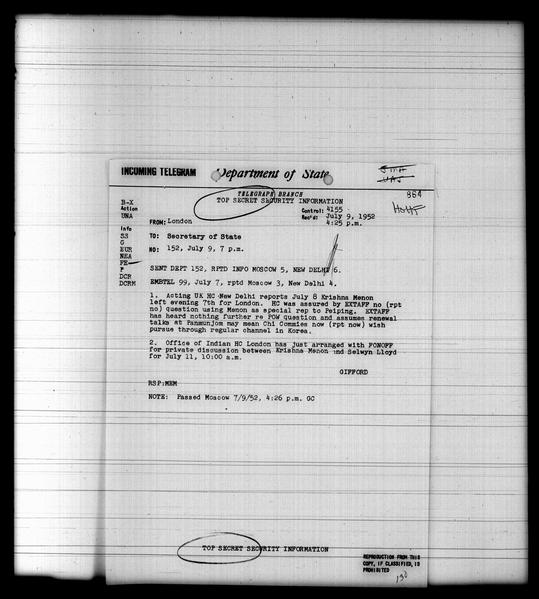 INCOMING TELEGRAM Department of State
TELEGRAPH BRANCH
TOP SECRET SECURITY INFORMATION
864
B-X
Action
UNA
Info
SS
G
EUR
NEA
FE
P
DCR
DCRM
Control: 4155
Rec'd: July 9, 1952
4:25 p.m.
FROM: London
TO: Secretary of State
NO: 152, July 9, 7 p.m.
SENT DEPT 152, RPTD INFO MOSCOW 5, NEW DELHI 6.
EMBTEL 99, July 7, rptd Moscow 3, New Delhi 4.
1. Acting UK HC New Delhi reports July 8 Krishna Menon
left evening 7th for London. HC was assured by EXTAFF no (rpt
no) question using Menon as special rep to Peiping. EXTAFF
has heard nothing further re POW question and assumes renewal
talks at Panmunjom may mean Chi Commies now (rpt now) wish
pursue through regular channel in Korea.
2. Office of Indian HC London has just arranged with FONOFF
for private discussion between Krishna Menon and Selwyn Lloyd
for July 11, 10:00 a.m.
GIFFORD
RSP:MEM
NOTE: Passed Moscow 7/9/52, 4:26 p.m. GC
TOP SECRET SECURITY INFORMATION
REPRODUCTION FROM THIS
COPY, IF CLASSIFIED, IS
PROHIBITED